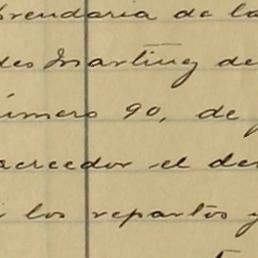 brendaria de la
des Martinez de
úmero 90, de
acreedor el de
los repartos y